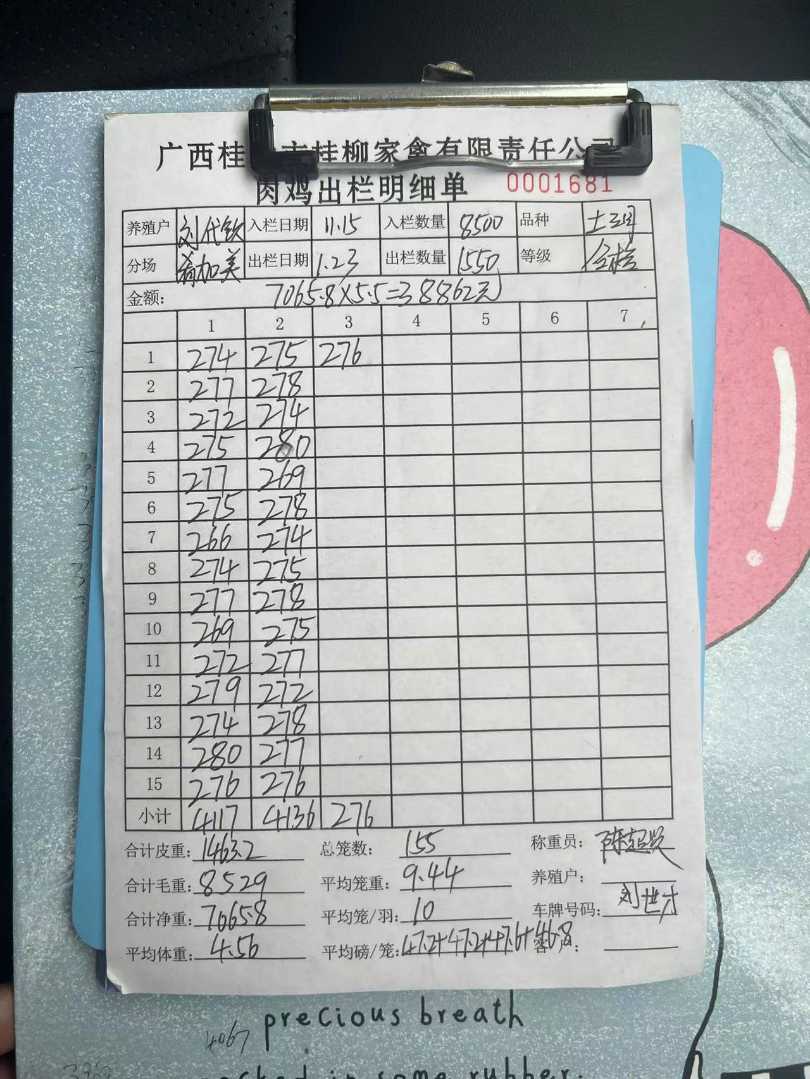 广西桂 市桂柳家禽有限责任公司
肉鸡出栏明细单 0001681
养殖户 刘代钦 入栏日期 11.15 入栏数量 8500 品种 土
分场 加美 出栏日期 1.23 出栏数量 1550 等级
金额: 7065.8×5.5=38862元
1 2 3 4 5 6 7
1 274 275 276
2 277 278
3 272 274
4 275 280
5 277 269
6 275 278
7 266 274
8 274 275
9 277 278
10 269 275
11 272 277
12 279 272
13 274 278
14 280 277
15 276 276
小计 4117 4136 276
合计皮重: 1463.2 总笼数: 155 称重员: 陈超
合计毛重: 8529 平均笼重: 9.44 养殖户:
合计净重: 7065.8 平均笼/羽: 10 车牌号码: 刘世才
平均体重: 4.56 平均磅/笼: 47.2+47.2+47.6+46.8
4067
precious breath
packed in some rubber.